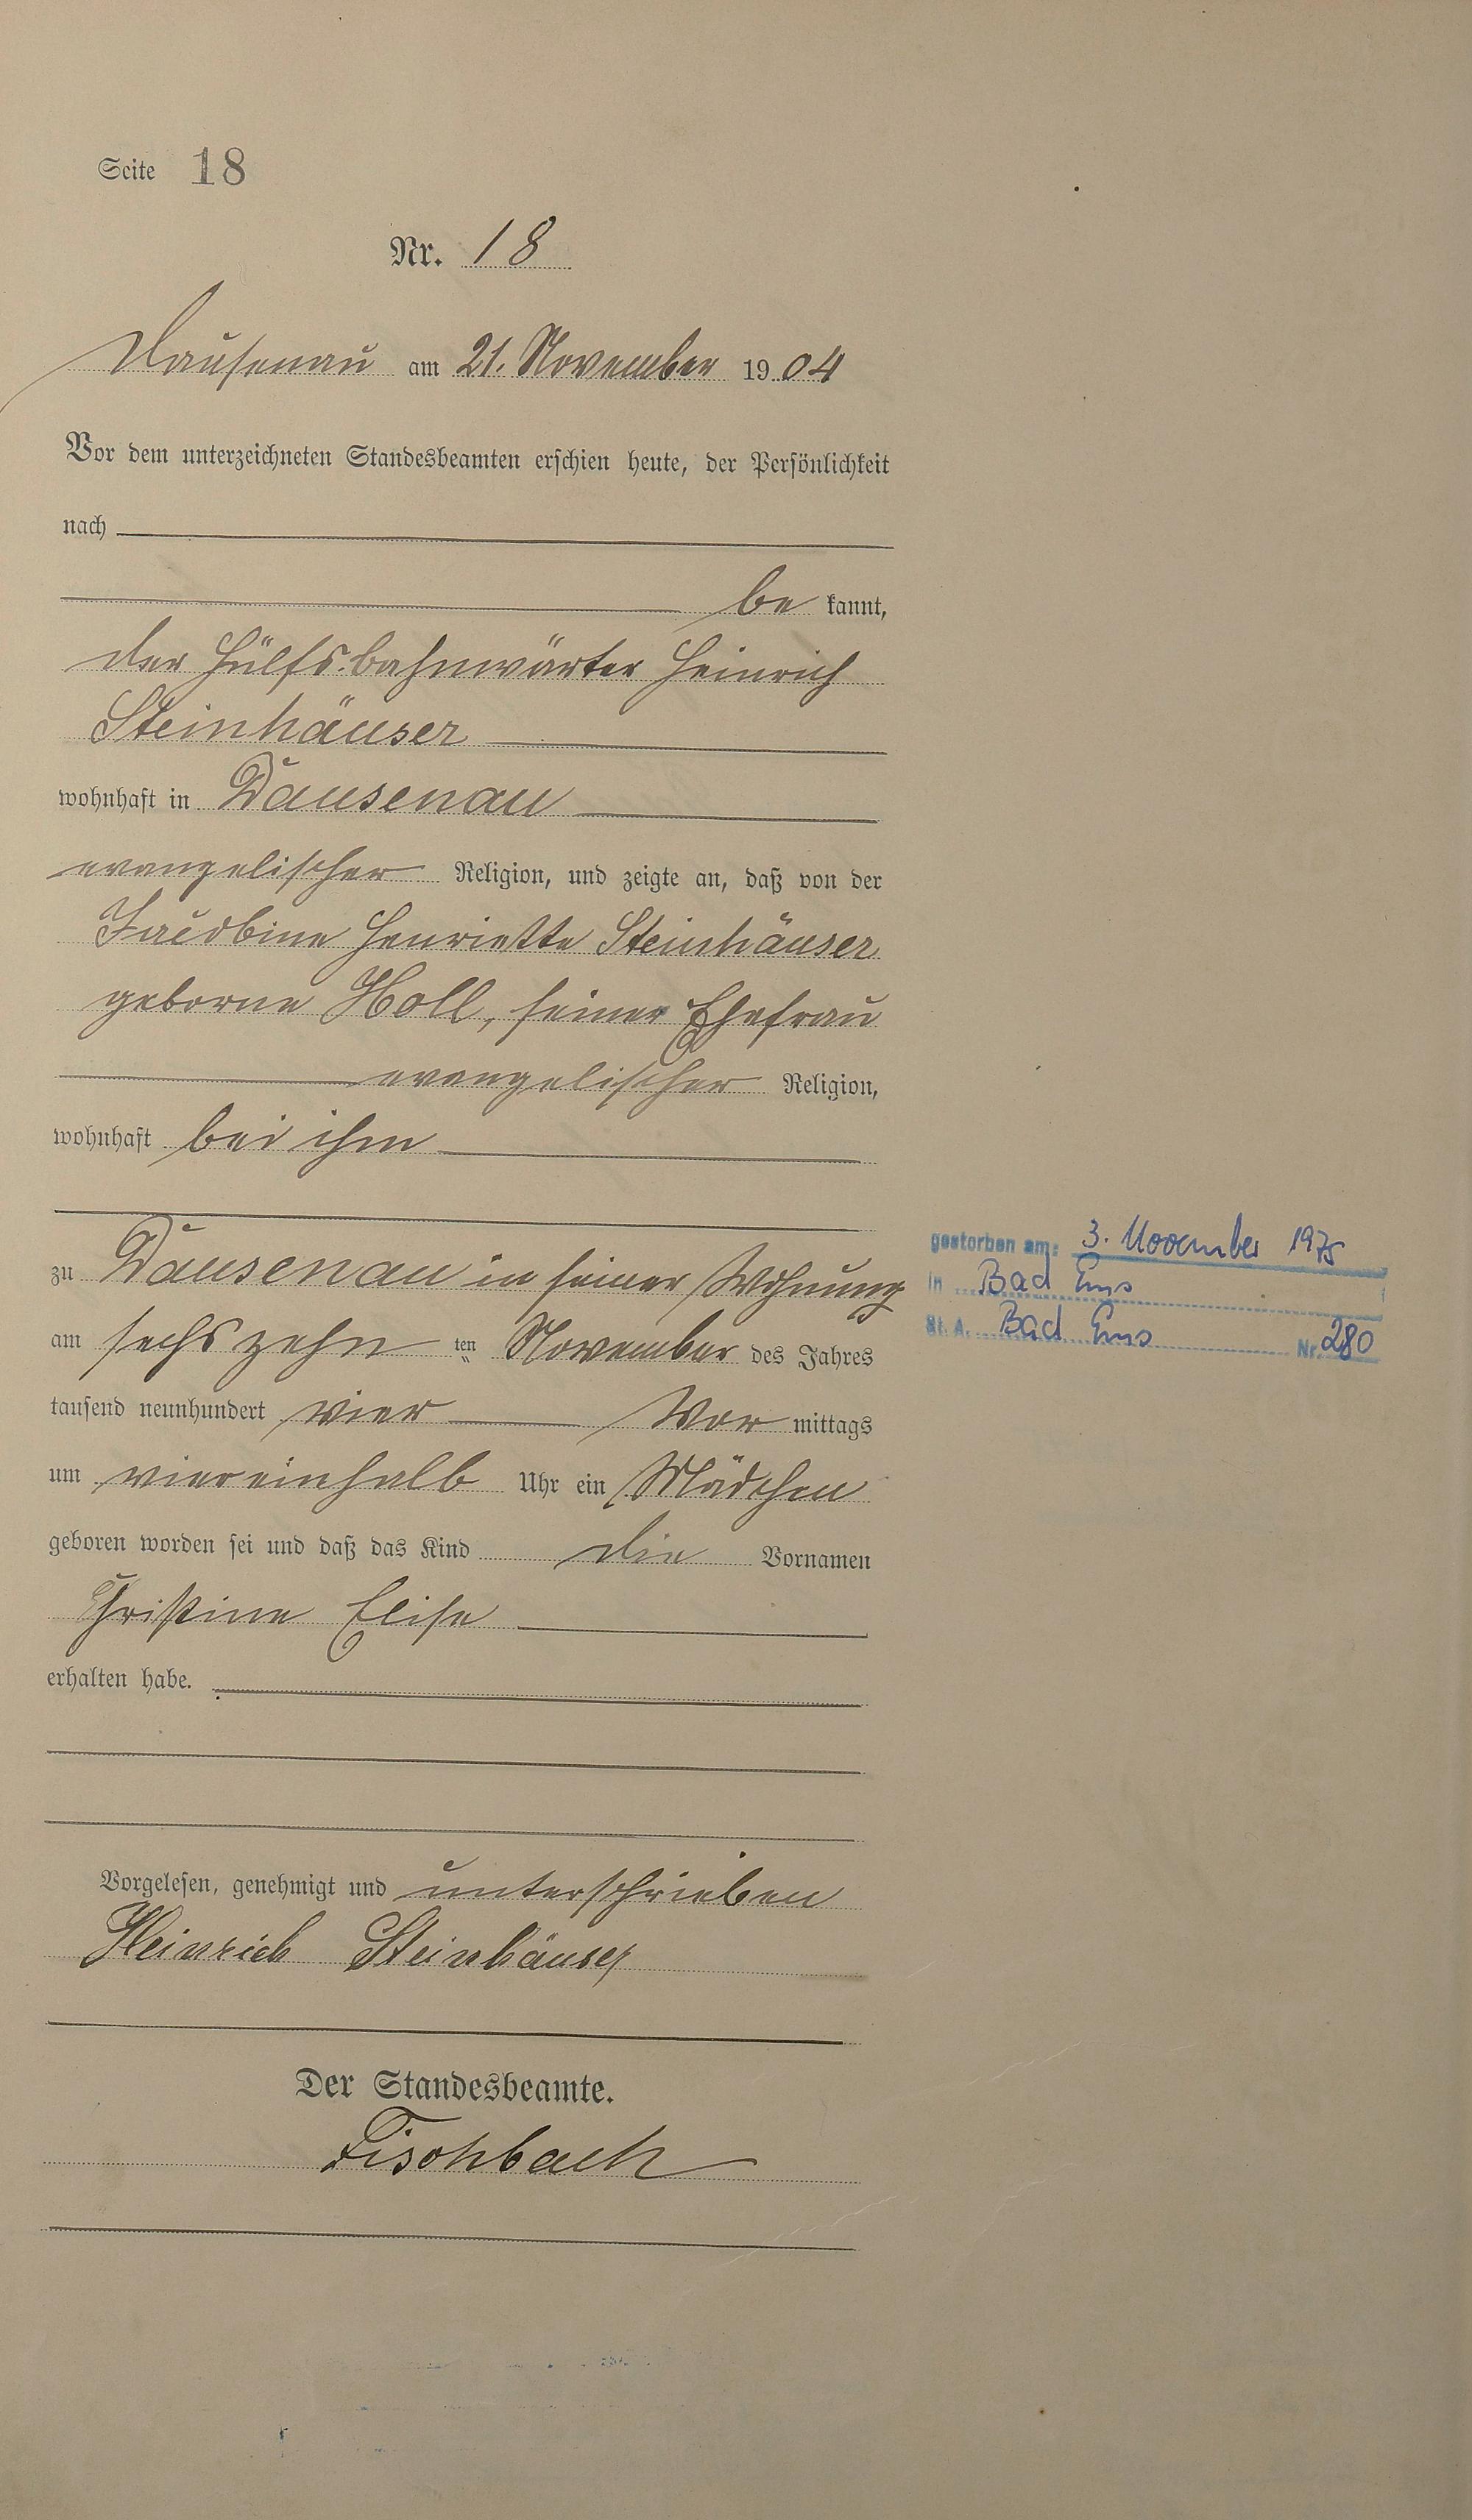 Seite 18
Nr. 18
Dausenau am 21. November 1904
Vor dem unterzeichneten Standesbeamten erschien heute, der Persönlichkeit
nach
be kannt,
der Hülfsbahnwärter Heinrich
Steinhäuser
wohnhaft in Dausenau
evangelischer Religion, und zeigte an, daß von der
Jacobine Henriette Steinhäuser
geborne Holl, seiner Ehefrau
evangelischer Religion,
wohnhaft bei ihm
zu Dausenau in seiner Wohnung
am sechszehn ten November des Jahres
tausend neunhundert vier Vor mittags
um viereinhalb Uhr ein Mädchen
geboren worden sei und daß das Kind die Vornamen
Christine Elise
erhalten habe.
Vorgelesen, genehmigt und unterschrieben
Heinrich Steinhäuser
Der Standesbeamte.
Fischbach
gestorben am: 3. November 1975
in Bad Ems
St. A. Bad Ems Nr. 280